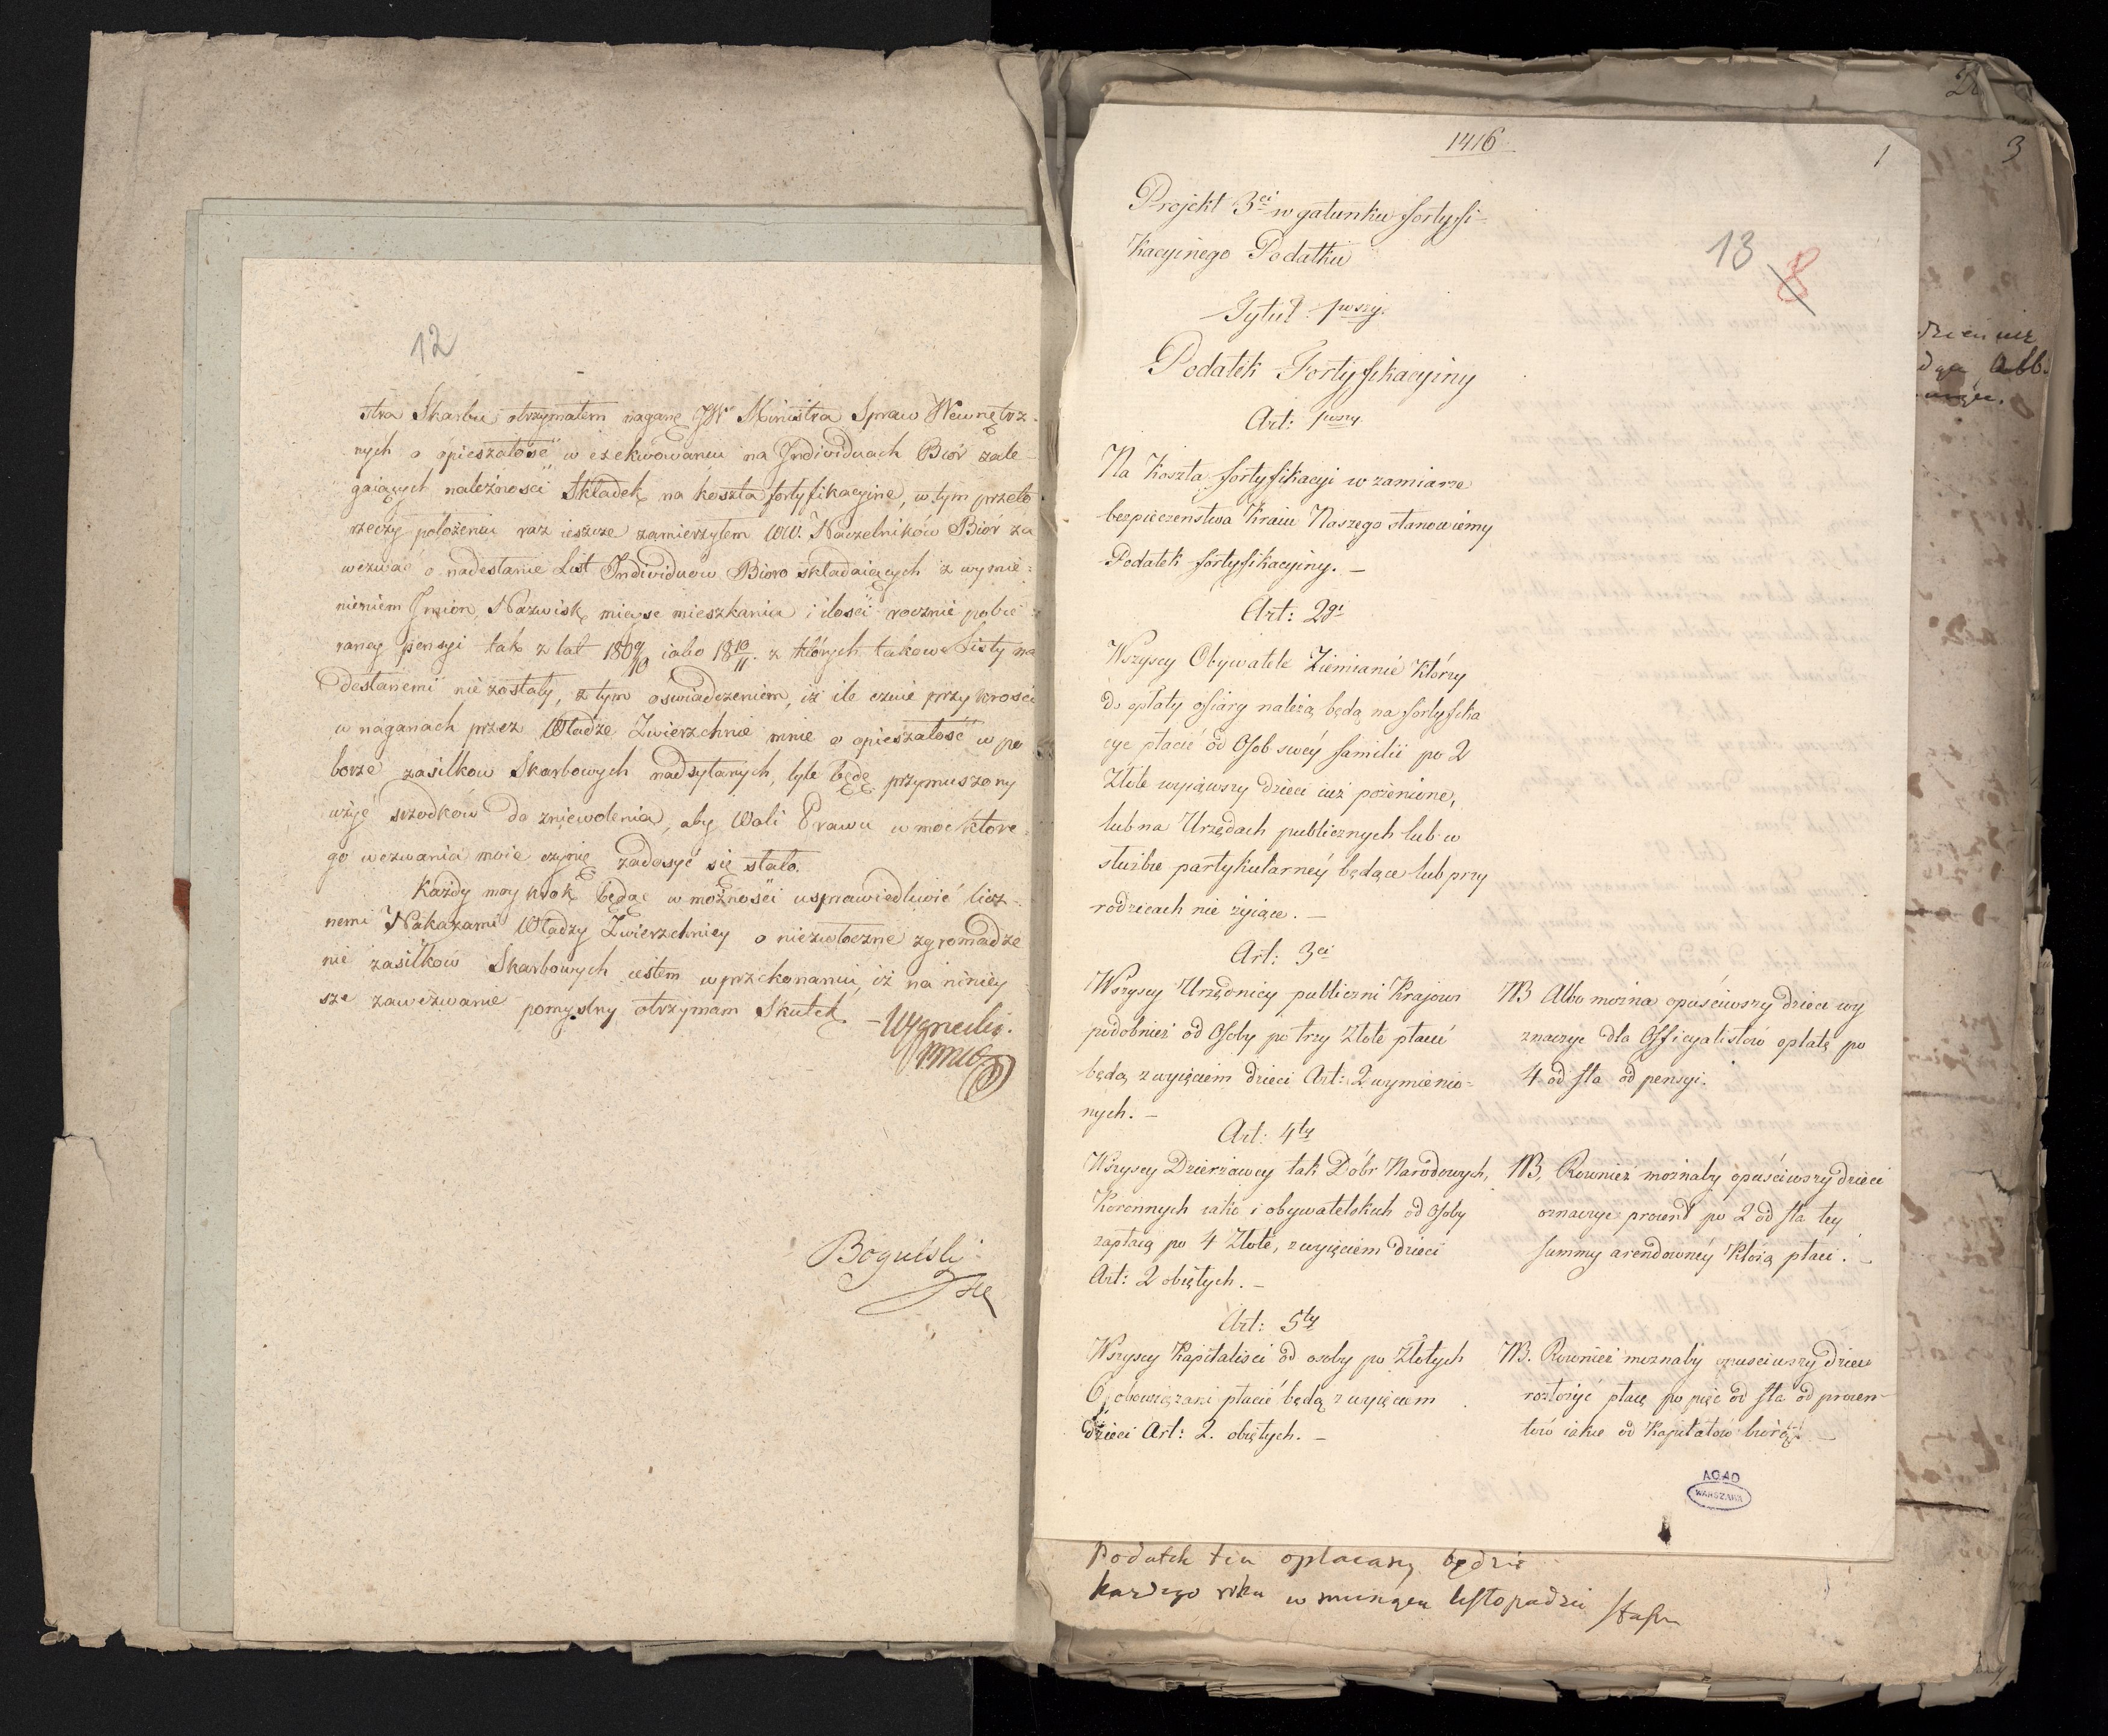 12
stra Skarbu otrzymałem naganę JW Ministra Spraw Wewnętrz-
nych o opieszałość w exekwowaniu na Individuach Biór zale-
gaiących należności Składek na koszta fortyfikacyine, w tym przeto
rzeczy położeniu raz ieszcze zamierzyłem WW. Naczelników Biór za
wezwać o nadesłanie List Individuów Bioro składaiących z wymie-
nieniem Imion, Nazwisk, mieysc mieszkania i ilości rocznie pobie-
raney pensyi tak z lat 1809/10 iako 1810/11. z których takowe Listy na
desłanemi nie zostały, z tym oświadczeniem, iż ile czuie przykrości
w naganach przez Władze Zwierzchnie mnie o opieszałość w po
borze zasiłkow Skarbowych nadsyłanych, tyle będę przymuszony
użyć srzodków do zniewolenia, aby Woli Prawa w moc które-
go wezwania moie czynię zadosyć się stało.
Każdy moy krok będąc w możności usprawiedliwić licz-
nemi Nakazami Władzy Zwierzchniey o niezwłoczne zgromadze
nie zasiłków Skarbowych iestem w przekonaniu, iż na niniey
sze zawezwanie pomyślny otrzymam Skutek
Boguński
1416
1
Projekt 3ci w gatunku fortyfi-
kacyinego Podatku
13
8
Tytuł 1wszy.
Podatek Fortyfikacyiny
Art: 1wszy
Na Koszta fortyfikacyi w zamiarze
bezpieczenstwa Kraiu Naszego stanowiemy
Podatek fortyfikacyiny. –
Art: 2gi
Wszyscy Obywatele Ziemianie którzy
do opłaty ofiary należą będą na fortyfika
cye płacić od Osob swey familii po 2
Złote wyiąwszy dzieci iuż pożenione,
lub na Urzędach publicznych lub w
służbie partykularney będące lub przy
rodzicach nie żyiące. –
Art: 3ci
Wszyscy Urzędnicy publiczni Krajowi
podobnież od Osoby po trzy Złote płacić
będą z wyięciem dzieci Art: 2 wymienio-
nych. –
NB Albo można opuściwszy dzieci wy
znaczyc dla Officyalistów opłatę po
4 od sta od pensyi.
Art: 4ty
Wszyscy Dzierżawcy tak Dóbr Narodowych,
Koronnych iako i obywatelskich od Osoby
zapłacą po 4 Złote, z wyięciem dzieci
Art: 2 obiętych. –
NB, Rownież możnaby opuściwszy dzieci
oznaczyc procent po 2 od sta tey
summy arendowney którą płaci. –
Art: 5ty
Wszyscy Kapitalisci od osoby po Złotych
6, obowiązani płacić będą z wyięciem
dzieci Art: 2. obiętych. –
NB. Rownież moznaby opusciwszy dzieci
rozłożyć płacę po pięc od sta od procen-
tów iakie od Kapitałów biorą. –
AGAD
WARSZAWA
Podatek ten opłacany będzie
każdego roku w miesiącu listopadzie
3